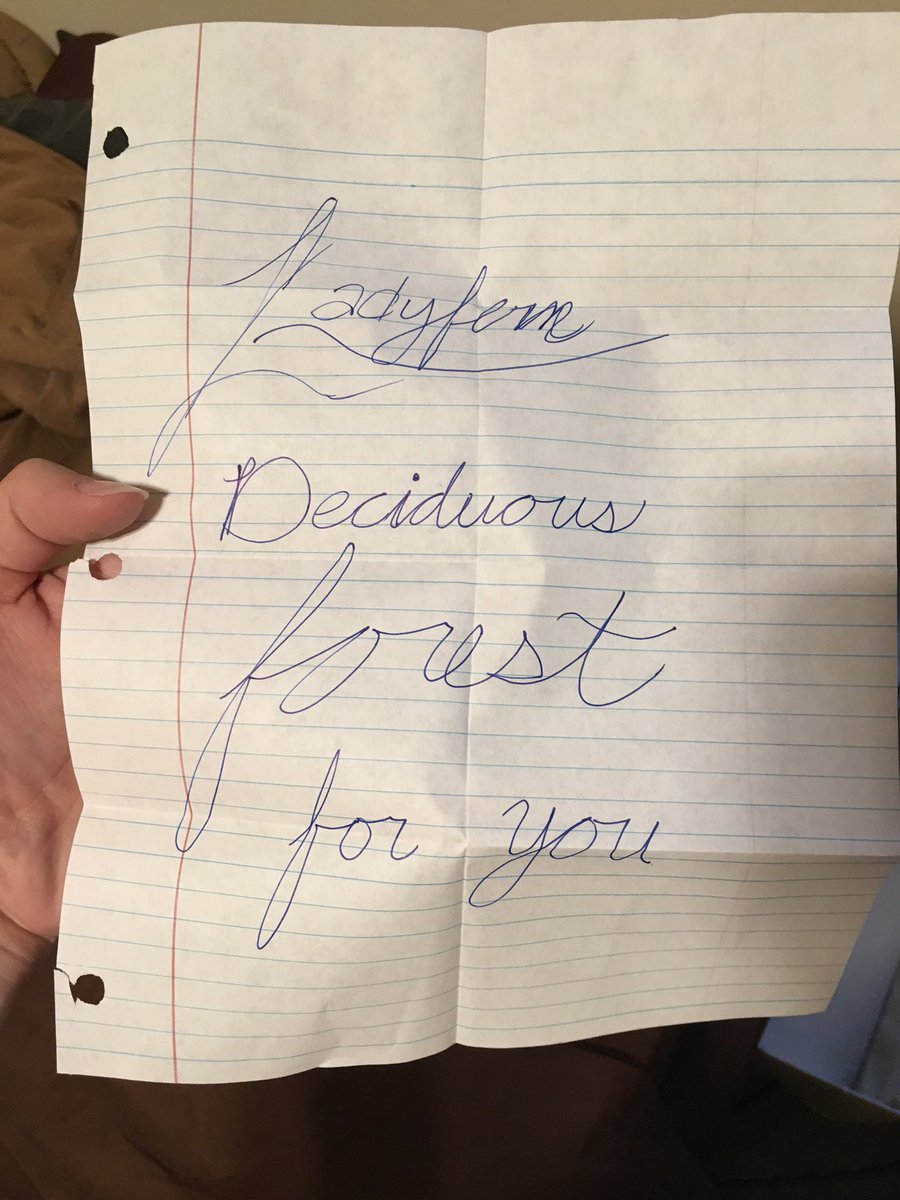 Ladyfern
Deciduous
forest
for you